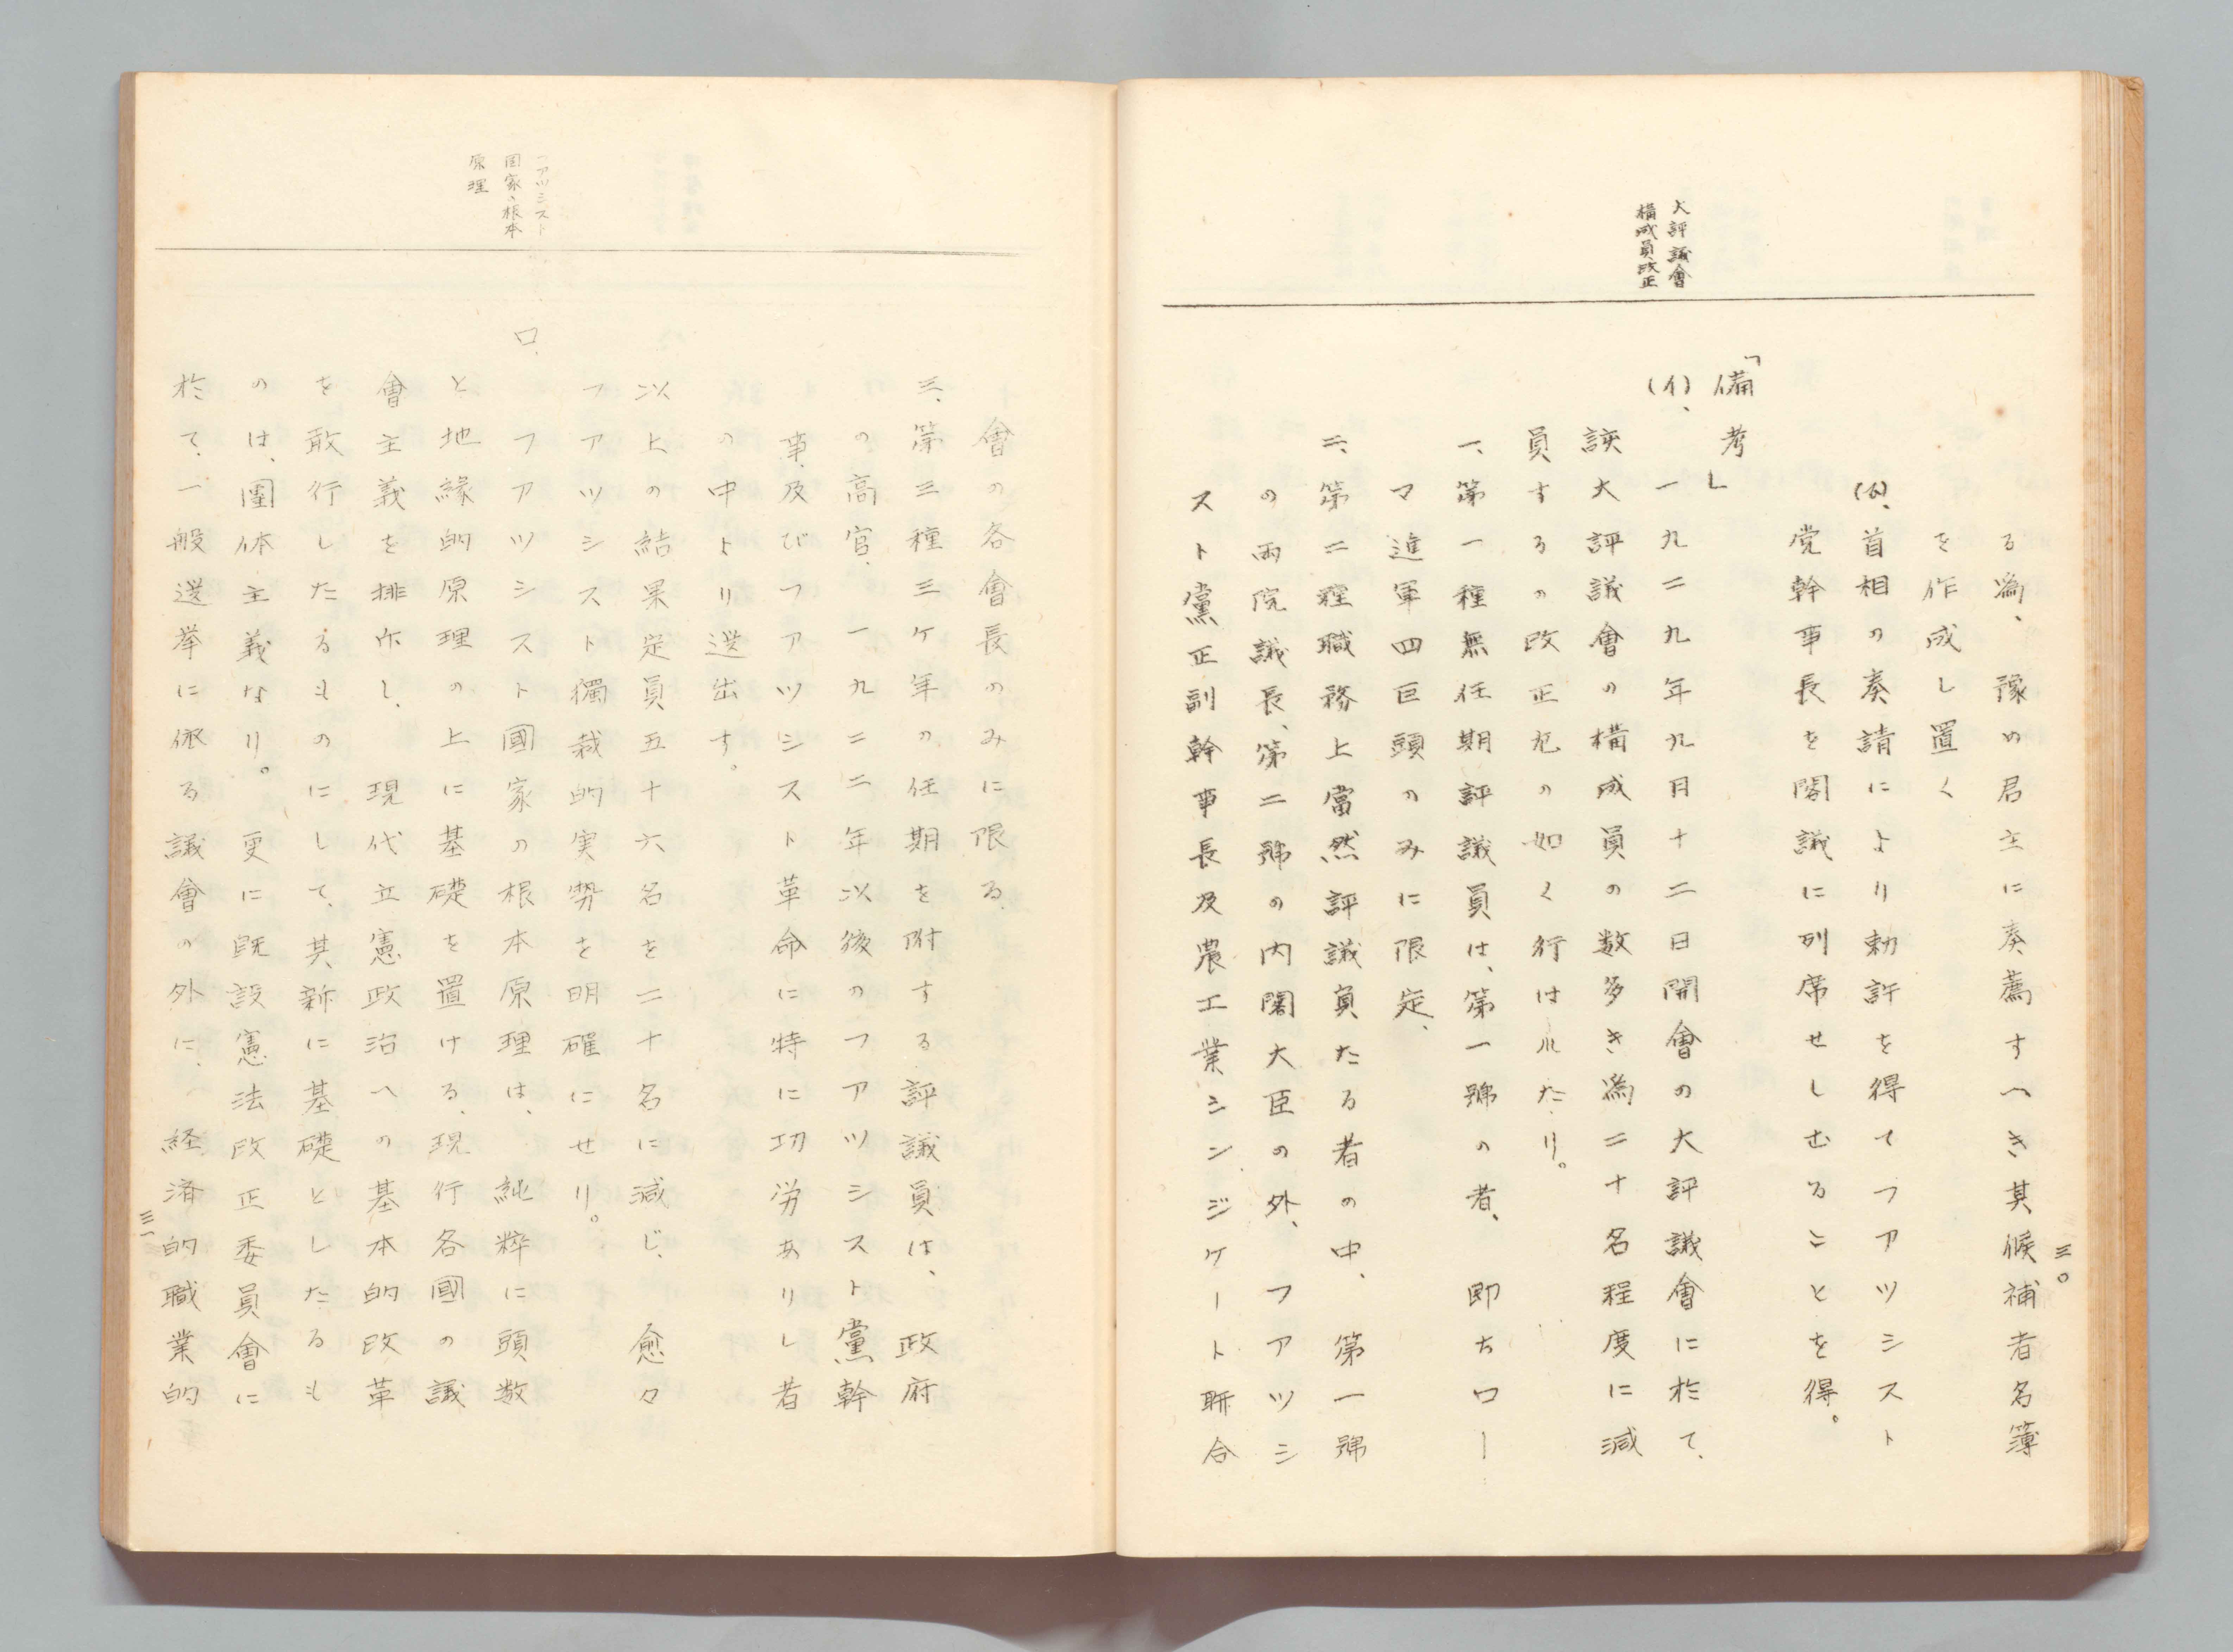 大評議會
構成員改正
る為、豫め君主に奏薦すへき其候補者名簿
を作成し置く
首相の奏請により勅許を得てフアツシスト
党幹事長を閣議に列席せしむることを得。
「備考」
(イ)、一九二九年九月十二日開會の大評議會に於て、
該大評議會の構成員の数多き為二十名程度に減
員するの改正九の如く行はれたり。
一、第一種無任期評議員は、第一號の者、即ちロー
マ進軍四巨頭のみに限定、
二、第二種職務上當然評議員たる者の中、第一號
の両院議長、第二號の内閣大臣の外、フアツシ
スト黨正副幹事長及農工業シンジケート聯合
三〇
フアツシスト
国家ノ根本
原理
會の各會長のみに限る、
三、第三種三ケ年の任期を附する評議員は、政府
の高官、一九二二年以後のフアツシスト黨幹
事及びフアツシスト革命に特に功労ありし者
の中より選出す。
以上の結果定員五十六名を二十名に減じ、愈々
フアツシスト獨裁的実勢を明確にせり。
ロ、フアツシスト國家の根本原理は、純粋に頭数
と地緣的原理の上に基礎を置ける、現行各國の議
會主義を排斥し、現代立憲政治への基本的改革
を敢行したるものにして、其新に基礎としたるも
のは、團体主義なり。更に既設憲法改正委員會に
於て、一般選挙に依る議會の外に、経済的職業的
三一